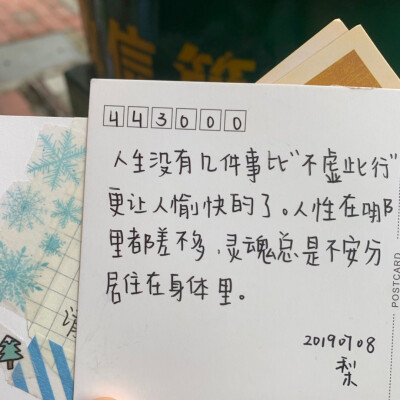 信箱
443000
人生没有几件事比“不虚此行”
更让人愉快的了。人性在哪
里都差不多,灵魂总是不安分
居住在身体里。
20190708
梨
POSTCARD